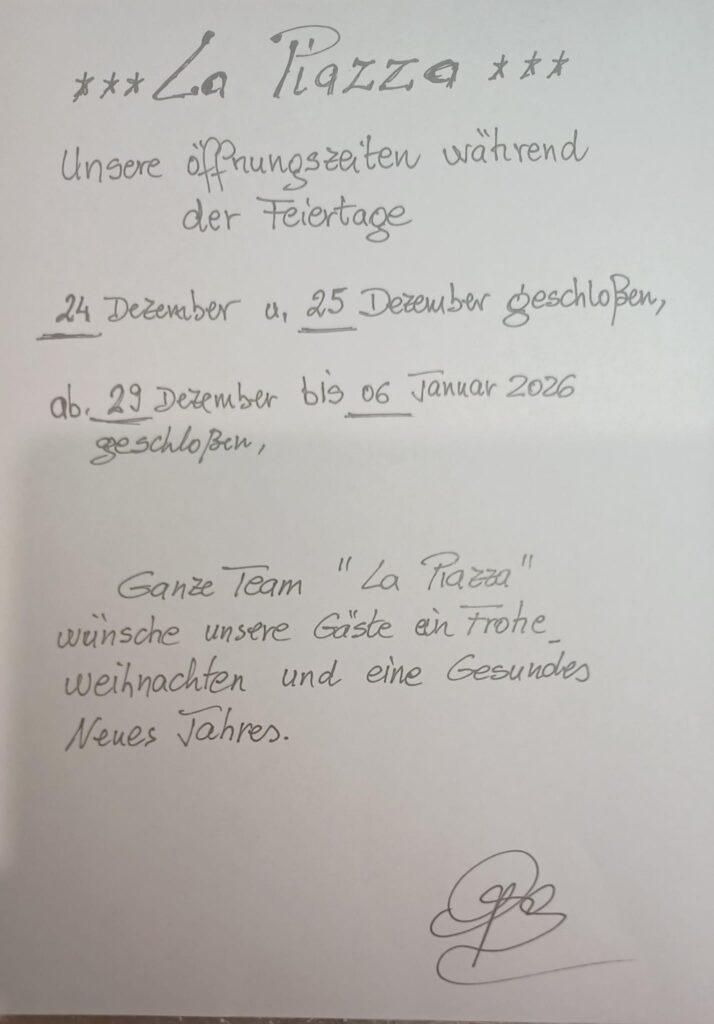 *** La Piazza ***
Unsere öffnungszeiten während
der Feiertage
24 Dezember u, 25 Dezember geschloßen,
ab. 29 Dezember bis 06 Januar 2026
geschloßen,
Ganze Team "La Piazza"
wünsche unsere Gäste ein Frohe_
weihnachten und eine Gesundes
Neues Jahres.